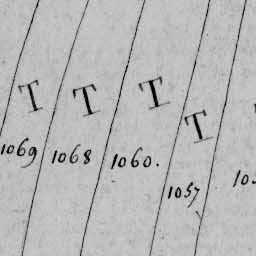 T T T T
1069 1068 1060. 1057